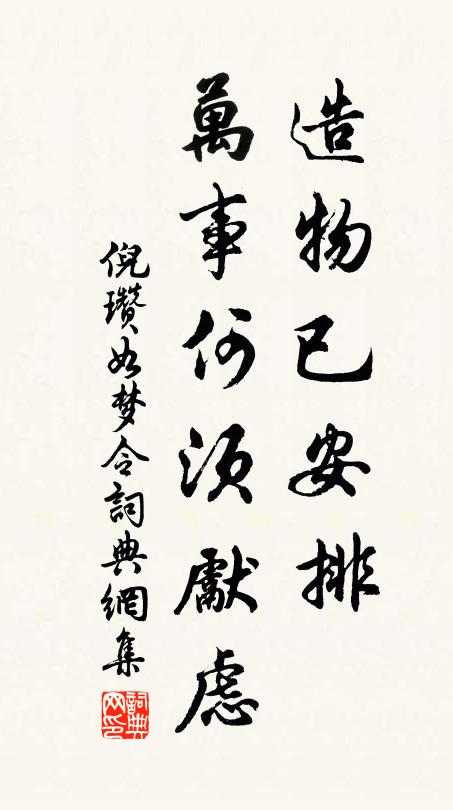 造物已安排
萬事何須獻慮
倪瓚如梦令詞典網集
詞典
网印